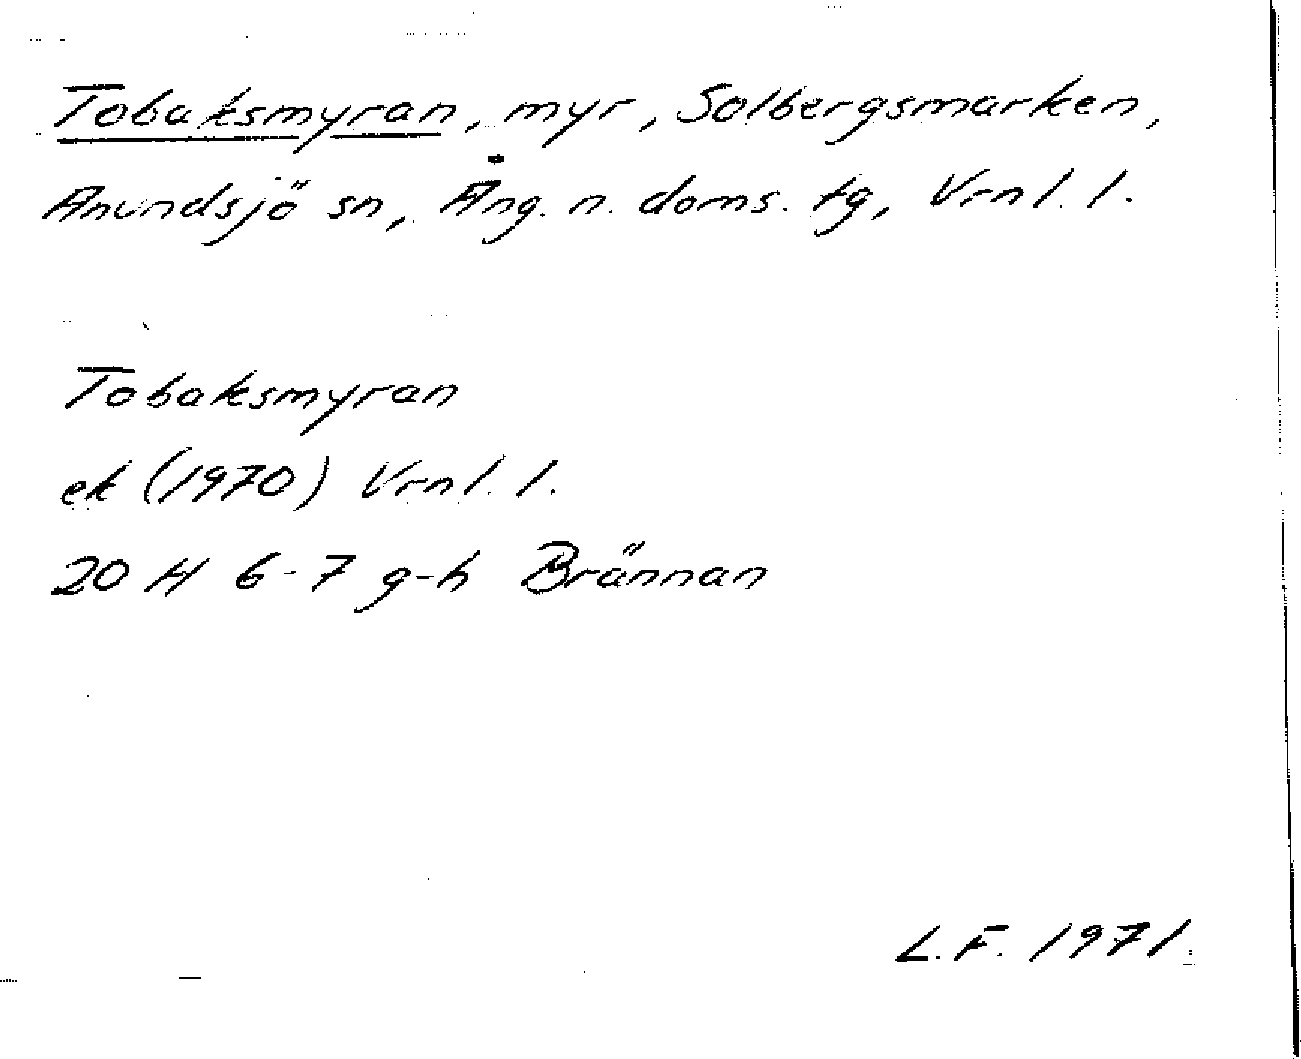 Tobaksmyran, myr, Solbergsmarken,
Anundsjö sn, Ång. n. doms. tg, Vrnl. l.
Tobaksmyran
ek (1970) Vrnl. l.
20 H 6-7 g-h Brännan
L.F. 1971.